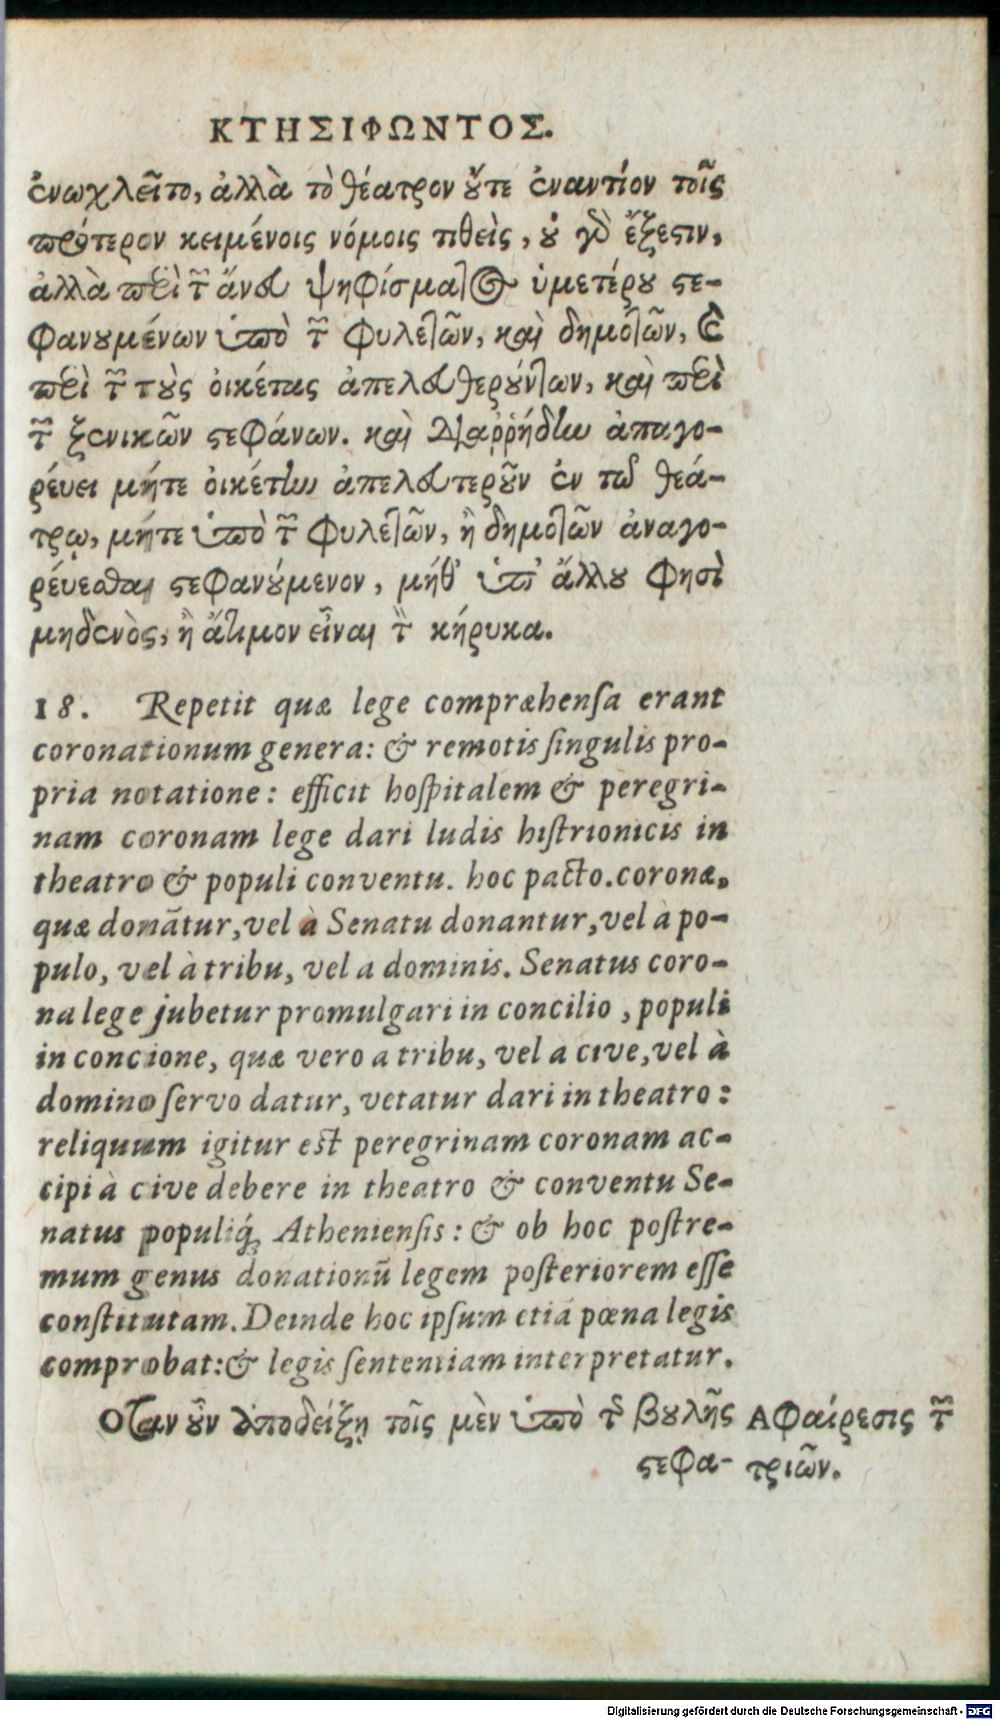 ΚΤΗΣΙΦΩΝΤΟΣ.
ἐνωχλεῖτο, ἀλλὰ τὸ θέατρον οὔτε ἐναντίον τοῖς
πρότερον κειμένοις νόμοις τιθεὶς, οὐ γὰρ ἔξεστιν,
ἀλλὰ περὶ τῶν ἄνευ ψηφίσματος ὑμετέρου στε-
φανουμένων ὑπὸ τῶν φυλετῶν, καὶ δημοτῶν, καὶ
περὶ τῶν τοὺς οἰκέτας ἀπελευθερούντων, καὶ περὶ
τῶν ξενικῶν στεφάνων. καὶ διαῤῥήδην ἀπαγο-
ρεύει μήτε οἰκέτην ἀπελευτεροῦν ἐν τῷ θεά-
τρῳ, μήτε ὑπὸ τῶν φυλετῶν, ἢ δημοτῶν ἀναγο-
ρέυεσθαι στεφανούμενον, μήθ' ὑπ' ἄλλου φησὶ
μηδενὸς, ἢ ἄτιμον εἶναι τὸν κήρυκα.
18. Repetit quæ lege compræhensa erant
coronationum genera: & remotis singulis pro-
pria notatione: efficit hospitalem & peregri-
nam coronam lege dari ludis histrionicis in
theatro & populi conventu. hoc pacto. coronæ,
quæ donātur, vel à Senatu donantur, vel à po-
pulo, vel à tribu, vel a dominis. Senatus coro-
na lege jubetur promulgari in concilio, populi
in concione, quæ vero a tribu, vel a cive, vel à
domino servo datur, vetatur dari in theatro:
reliquum igitur est peregrinam coronam ac-
cipi à cive debere in theatro & conventu Se-
natus populiq́; Atheniensis: & ob hoc postre-
mum genus donationū legem posteriorem esse
constitutam. Deinde hoc ipsum etiā pœna legis
comprobat: & legis sententiam interpretatur.
Οταν οὖν ἀποδείξῃ τοῖς μὲν ὑπὸ τῆς βουλῆς
στεφα-
Αφαίρεσις τῶν
τριῶν.
Digitalisierung gefördert durch die Deutsche Forschungsgemeinschaft - DFG